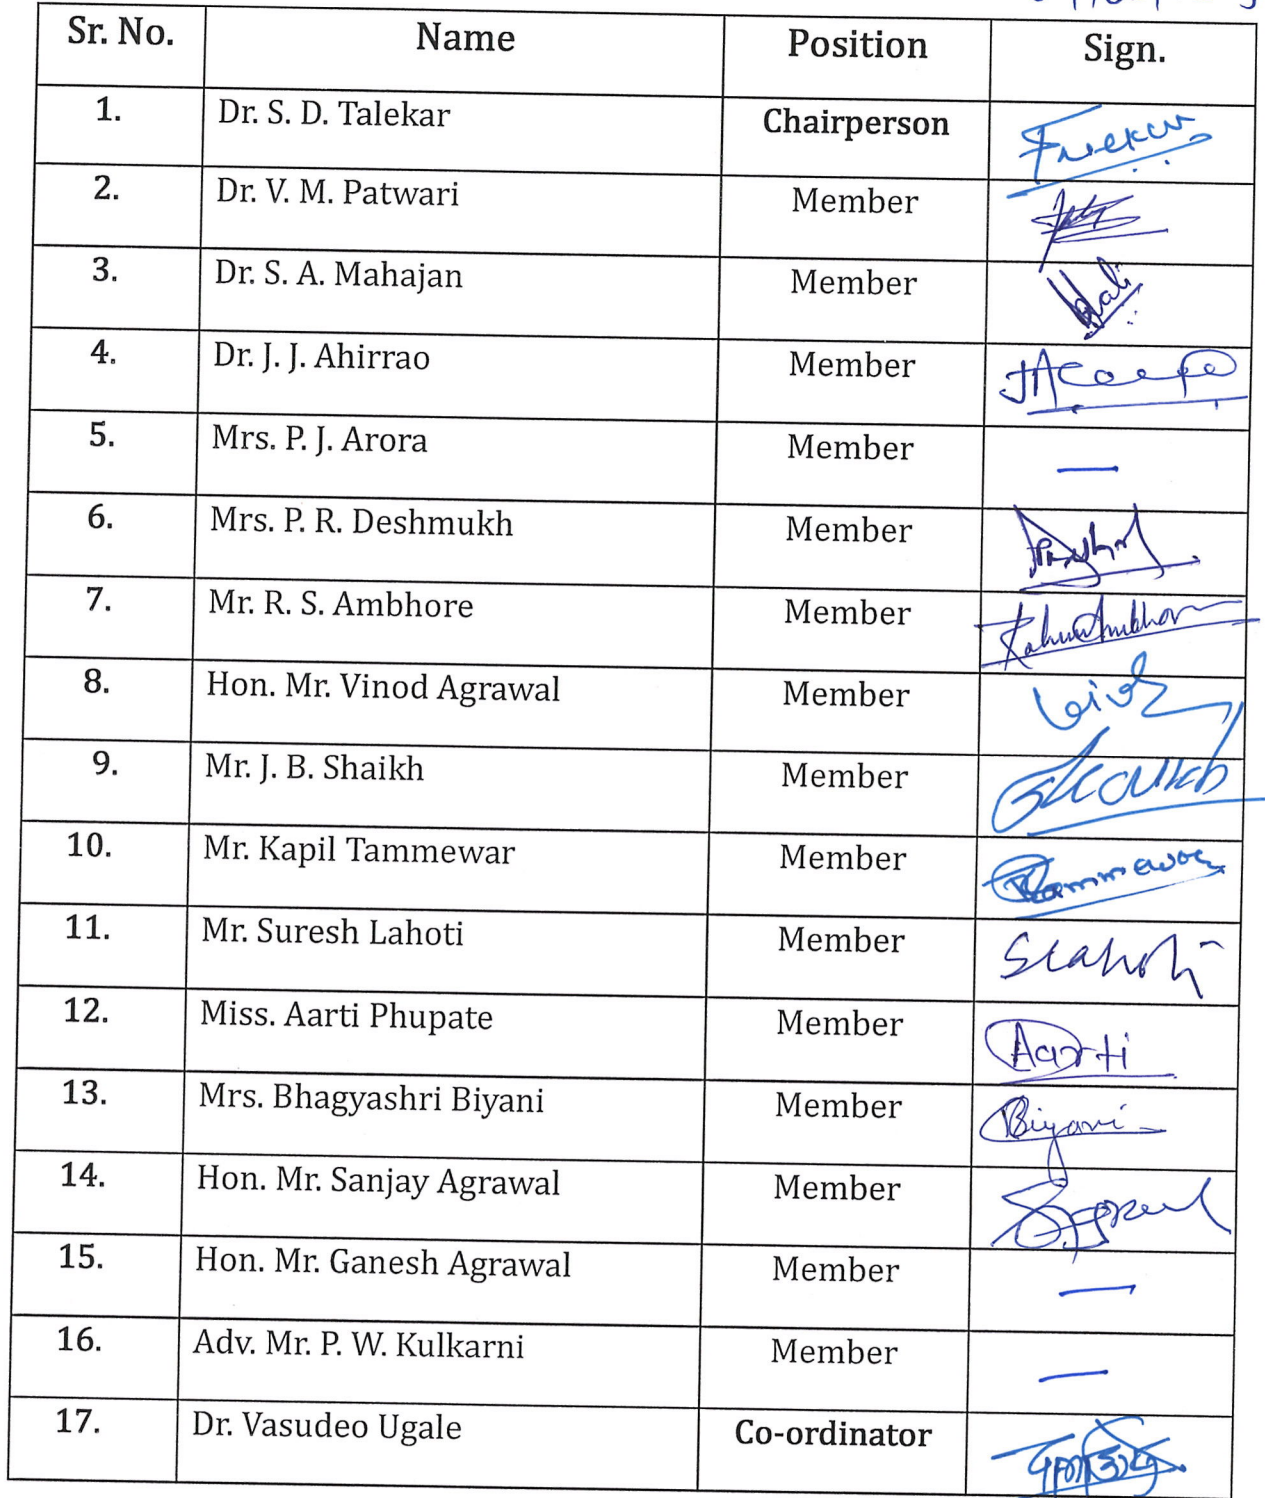 Sr. No. Name Position Sign.
1. Dr. S. D. Talekar Chairperson
2. Dr. V. M. Patwari Member
3. Dr. S. A. Mahajan Member
4. Dr. J. J. Ahirrao Member
5. Mrs. P. J. Arora Member —
6. Mrs. P. R. Deshmukh Member
7. Mr. R. S. Ambhore Member
8. Hon. Mr. Vinod Agrawal Member
9. Mr. J. B. Shaikh Member
10. Mr. Kapil Tammewar Member
11. Mr. Suresh Lahoti Member
12. Miss. Aarti Phupate Member Aarti
13. Mrs. Bhagyashri Biyani Member Biyani
14. Hon. Mr. Sanjay Agrawal Member
15. Hon. Mr. Ganesh Agrawal Member —
16. Adv. Mr. P. W. Kulkarni Member —
17. Dr. Vasudeo Ugale Co-ordinator